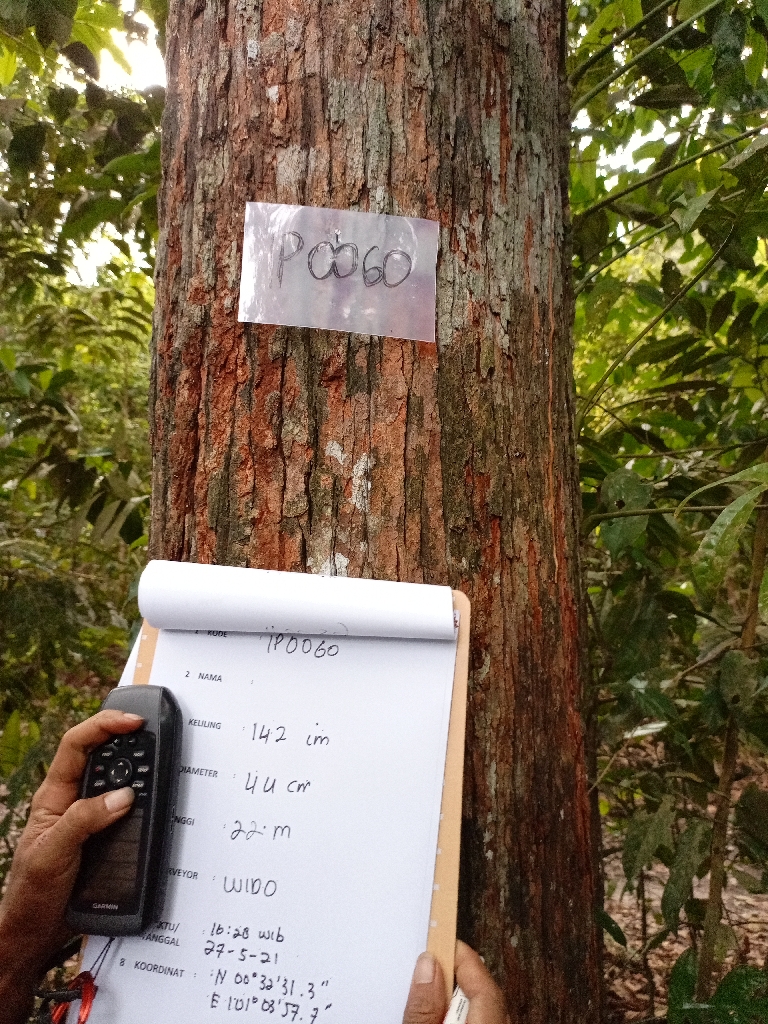 IP0060
1 KODE : IP0060
2 NAMA :
KELILING : 142 cm
DIAMETER : 44 cm
NGGI : 22 m
RVEYOR : WIDO
KTU/ : 16:28 WIB
TANGGAL 27-5-21
8 KOORDINAT : N 00°32'31.3"
E 101°03'57.7"
GARMIN